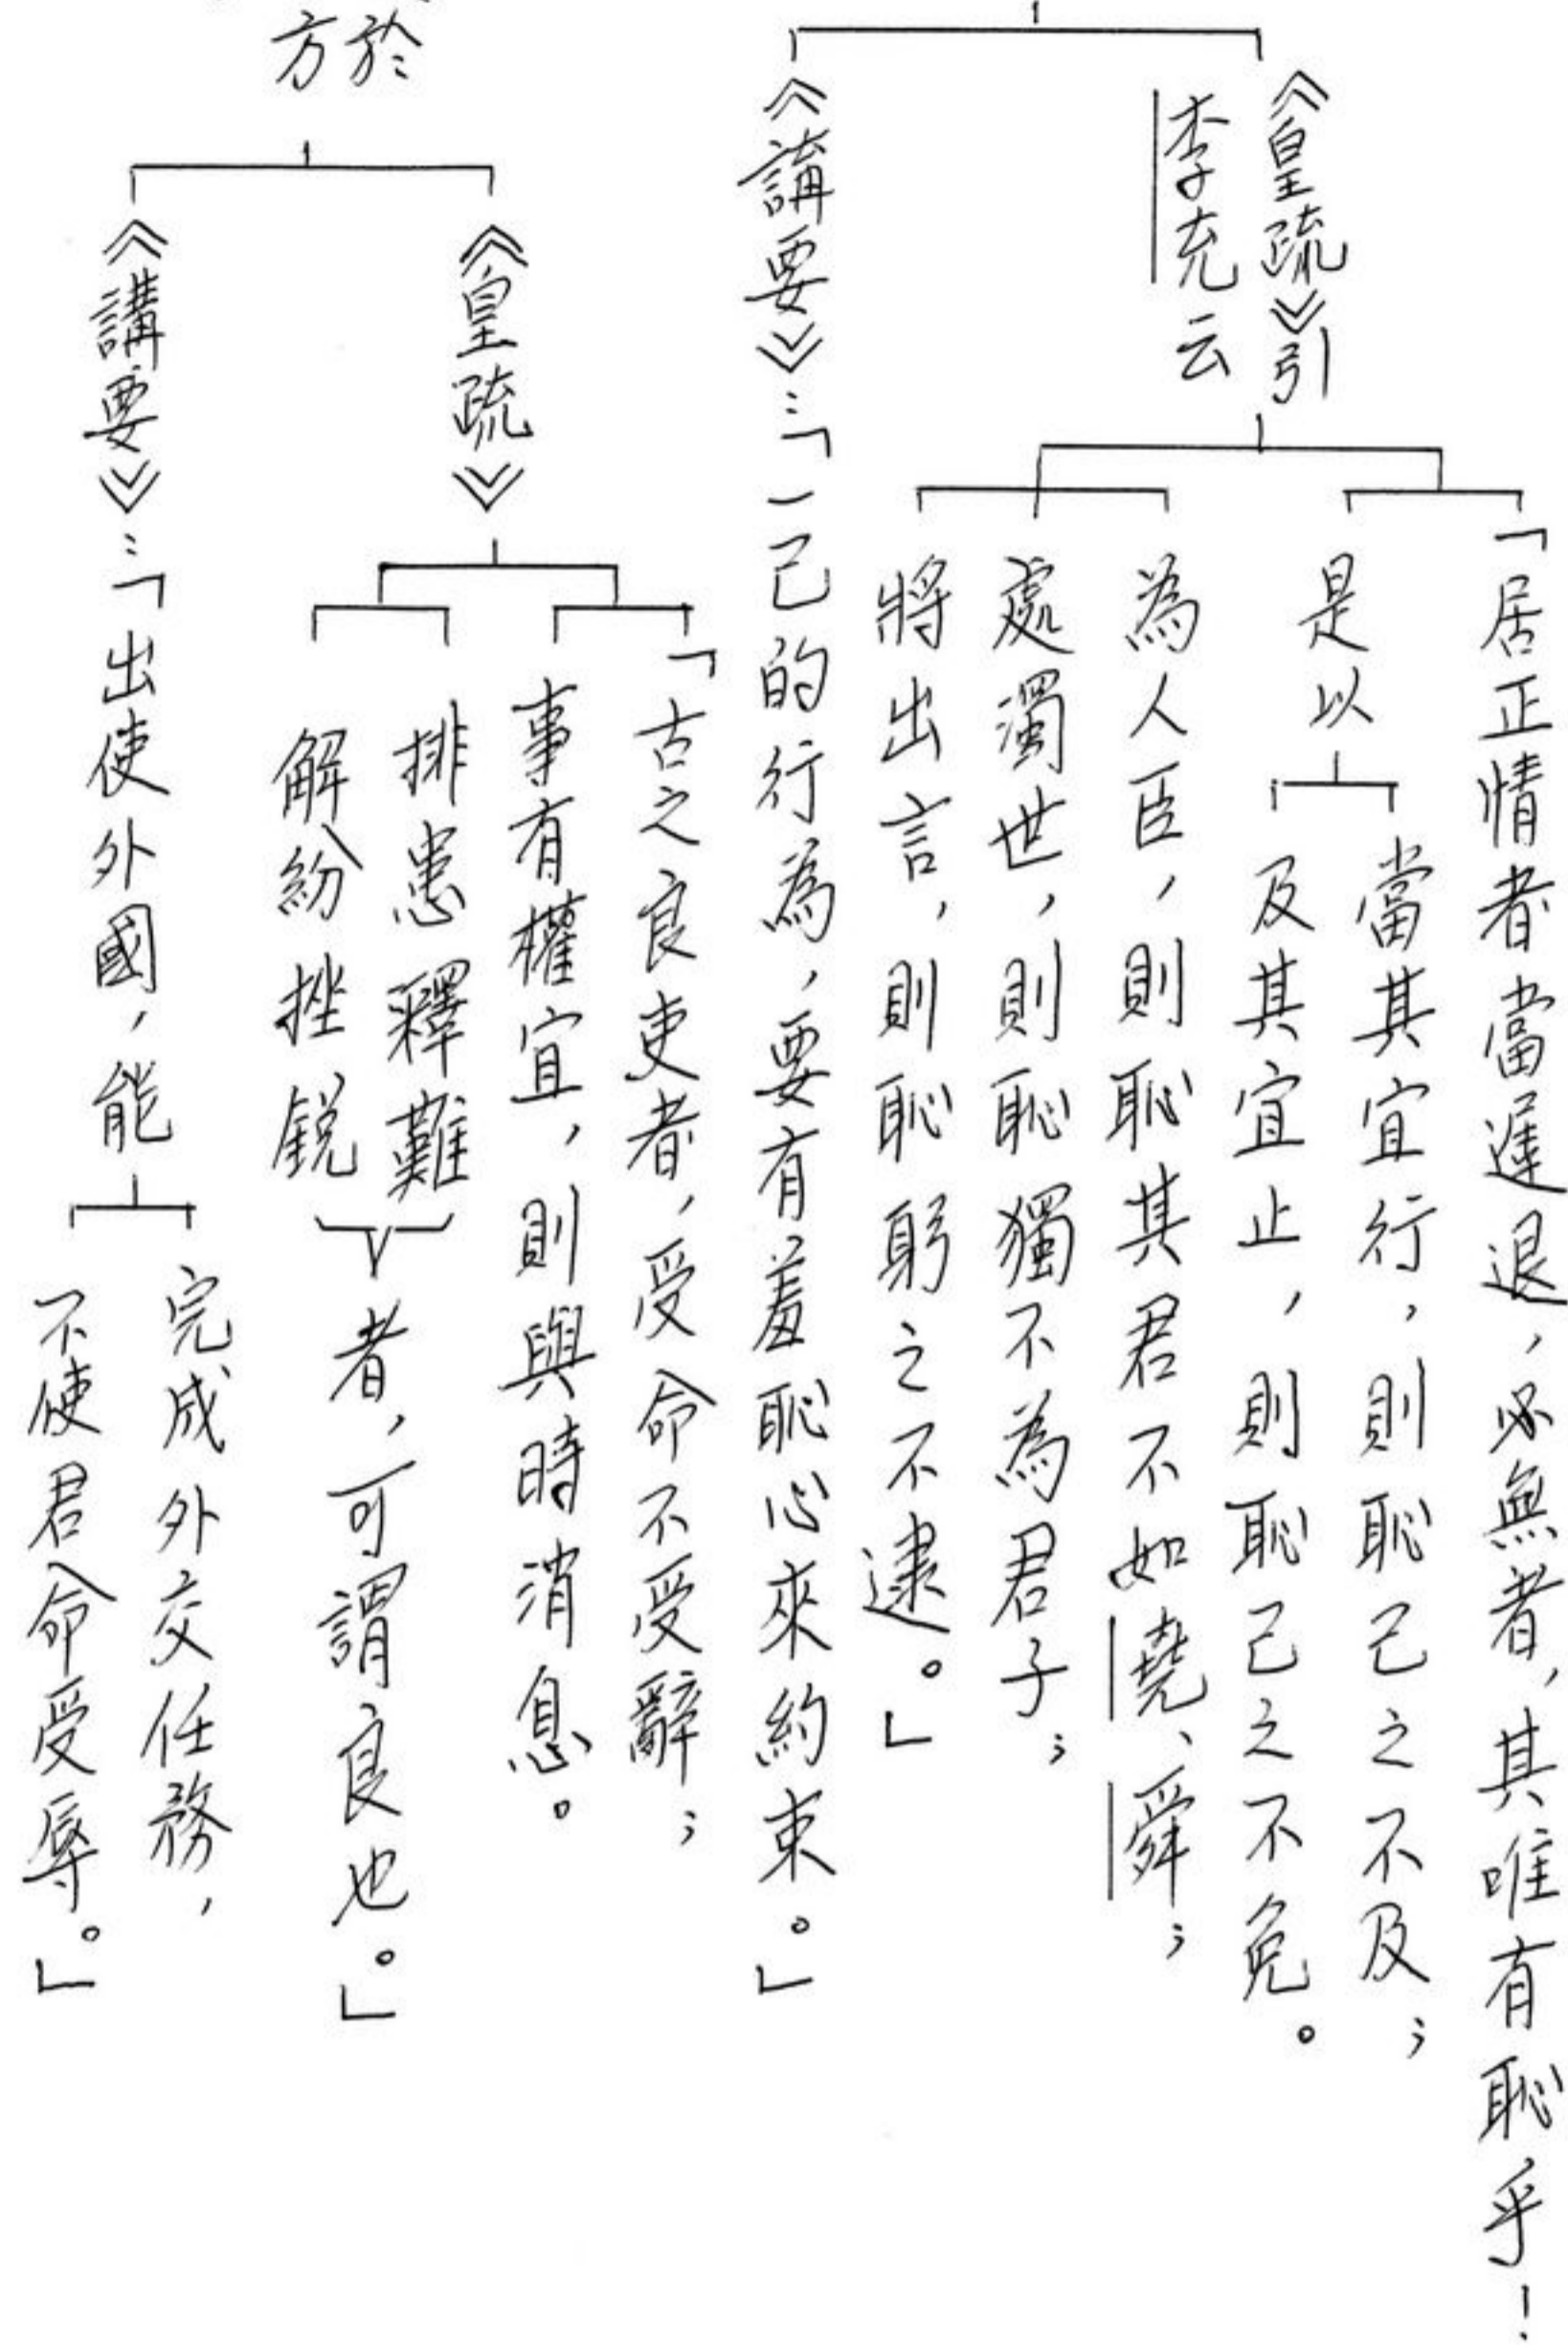 《皇疏》引
李充云
「居正情者當遲退，必無者，其唯有恥乎！
是以
當其宜行，則恥己之不及；
及其宜止，則恥己之不免。
為人臣，則恥其君不如堯、舜；
處濁世，則恥獨不為君子；
將出言，則恥躬之不逮。」
《講要》：「一己的行為，要有羞恥心來約束。」
於
方
《皇疏》
「古之良吏者，受命不受辭；
事有權宜，則與時消息。
排患釋難
解紛挫銳
者，可謂良也。」
《講要》：「出使外國，能
完成外交任務，
不使君命受辱。」